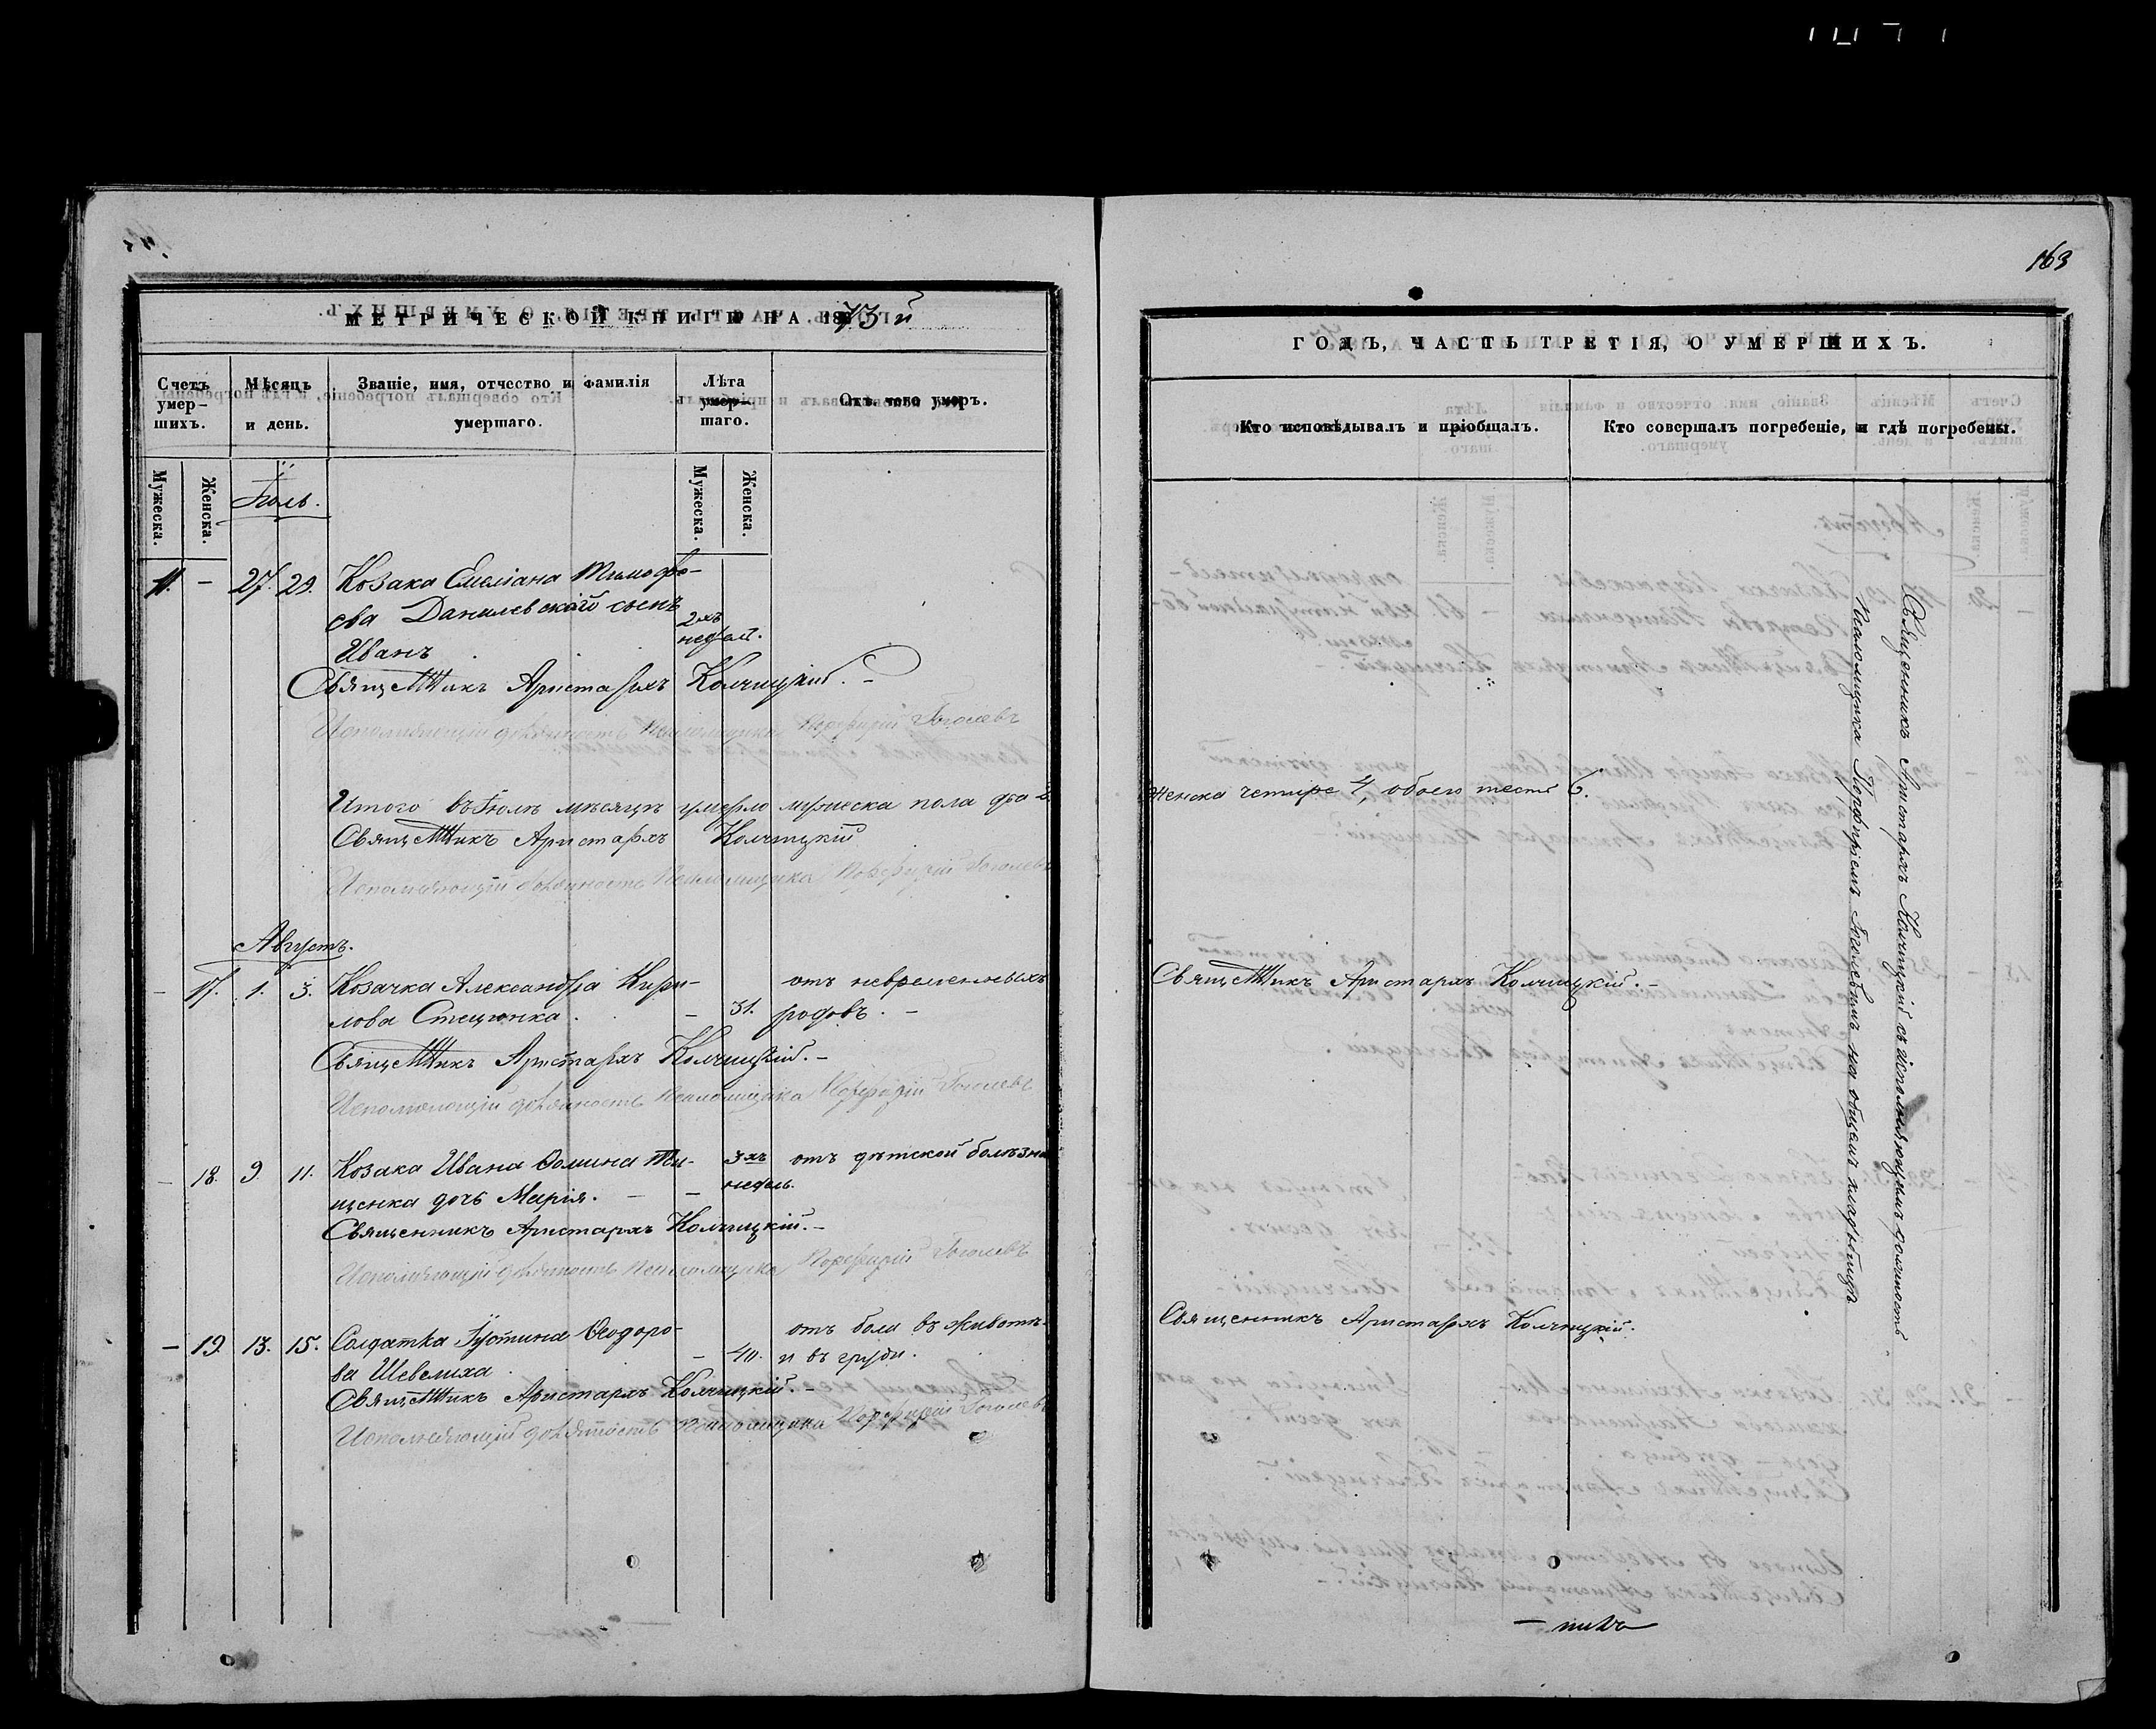 163
МЕТРИЧЕСКОЙ КНИГИ НА 1873 й
Счетъ умер-шихъ.
Мѣсяцъ и день.
Званіе, имя, отчество и фамилія умершаго.
Лѣта умер-шаго.
Отъ чего умеръ.
Мужеска.
Женска.
Мужеска.
Женска.
Іюль.
11. - 27. 29. Козака Емеліана Тимофе-
ева Данилевскаго сынъ 2хъ
Иванъ недѣл.
Священникъ Аристархъ Колчицкій. -
Исполняющій должность Псаломщика Порфирій Гоголевъ
Итого въ Іюлѣ мѣсяцѣ умерло мужеска пола два 2
Священникъ Аристархъ Колчицкій
Исполняющій должность Псаломщика Порфирій Гоголевъ
Августъ.
- 17. 1. 3. Козачка Александра Кири- отъ невременныхъ
лова Стецюнка. - 31. родовъ. -
Священникъ Аристархъ Колчицкій. -
Исполняющій должность Псаломщика Порфирій Гоголевъ
- 18. 9. 11. Козака Ивана Ѳомина Ти- 3хъ отъ дѣтской болѣзни
щенка дочь Марія. - - недѣль.
Священникъ Аристархъ Колчицкій. -
Исполняющій должность Псаломщика Порфирій Гоголевъ
- 19. 13. 15. Солдатка Іустина Ѳеодоро- отъ боли въ животѣ
ва Шевелиха. - 40. и въ груди.
Священникъ Аристархъ Колчицкій. -
Исполняющій должность Псаломщика Порфирій Гоголевъ
ГОДЪ, ЧАСТЬ ТРЕТІЯ, О УМЕРШИХЪ.
Кто исповѣдывалъ и пріобщалъ.
Кто совершалъ погребеніе, и гдѣ погребены.
Женска четыре 4, обоего шесть 6.
Священникъ Аристархъ Колчицкій. -
Священникъ Аристархъ Колчицкій.
Священникъ Аристархъ Колчицкій съ исполняющимъ должность
Псаломщика Порфиріемъ Гоголевымъ на общемъ кладбищѣ